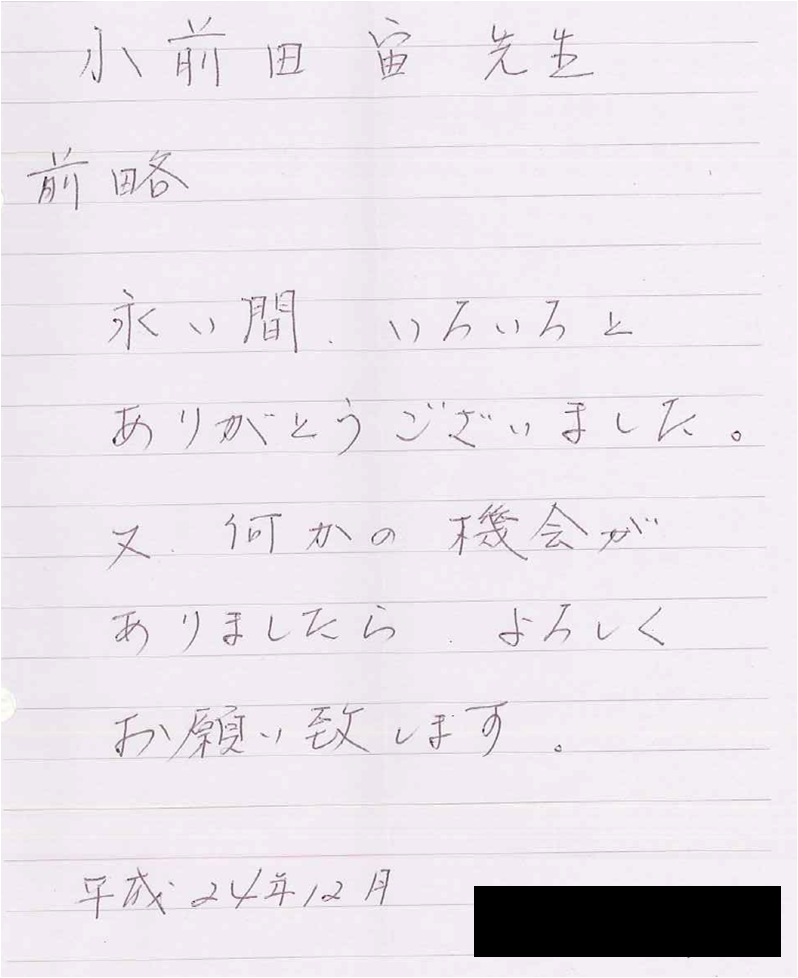 小前田 宙 先生
前略
永い間、いろいろと
ありがとうございました。
又、何かの機会が
ありましたら、よろしく
お願い致します。
平成24年12月